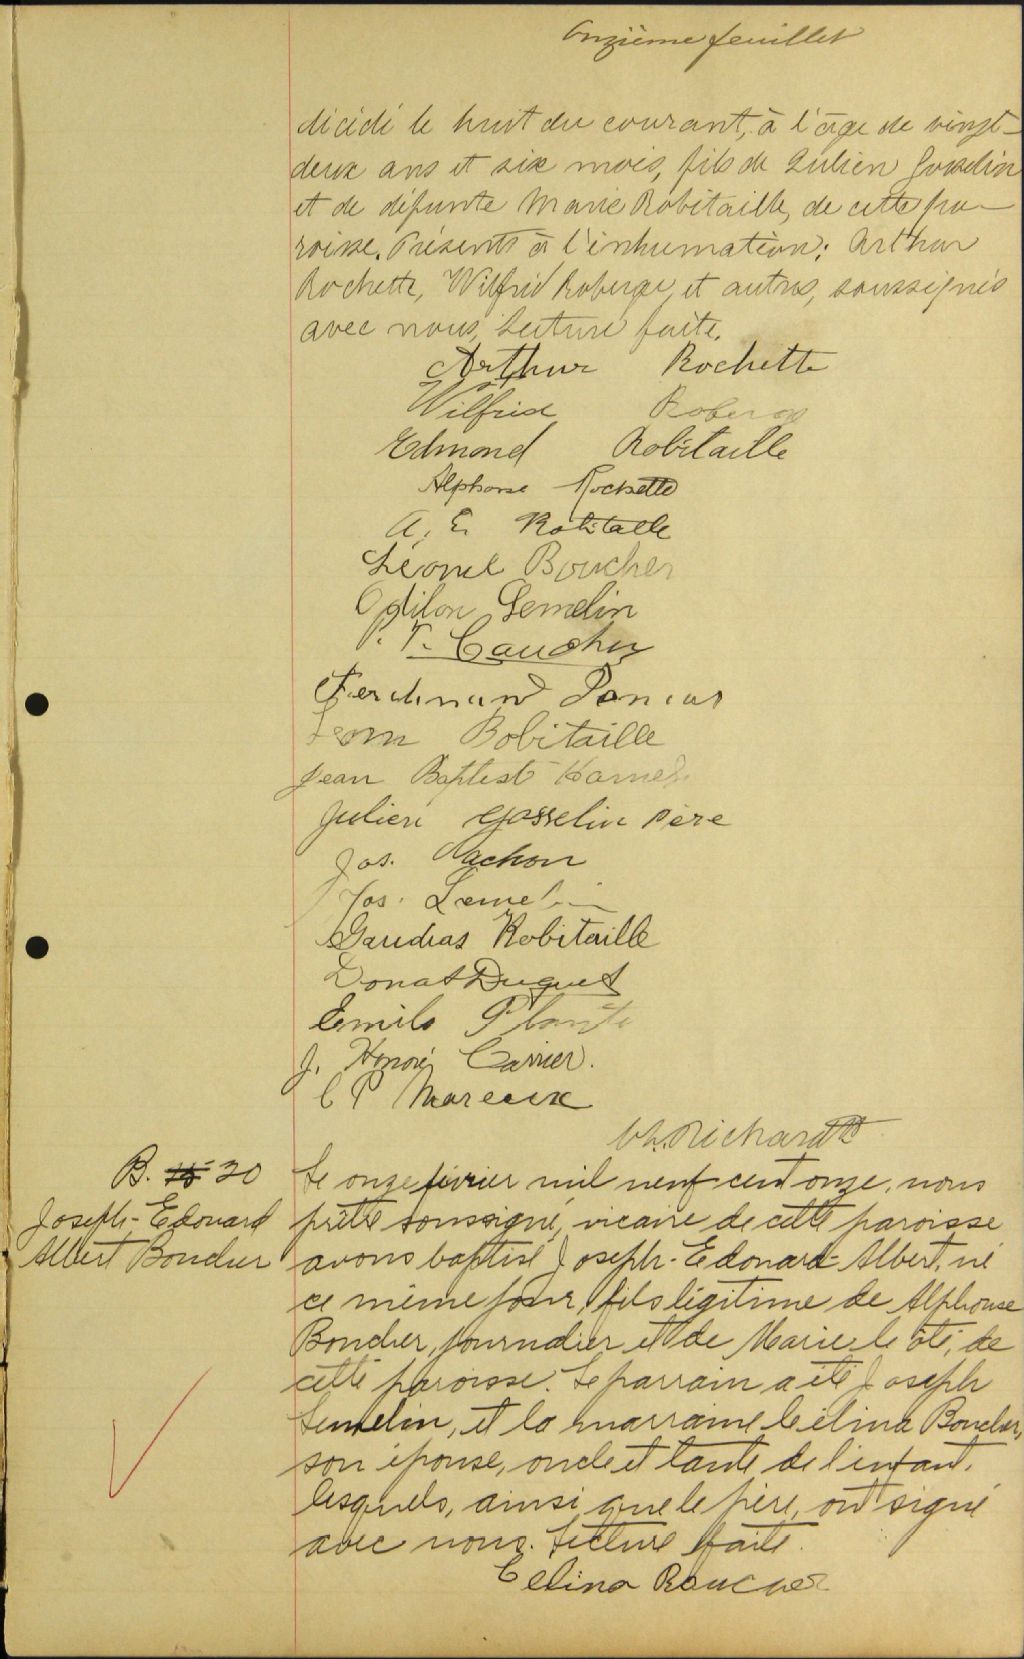 Onzième feuillet
décédé le huit du courant, à l'âge de vingt-
deux ans et six mois, fils de Julien Gosselin
et de défunte Marie Robitaille, de cette pa-
roisse. Présents à l'inhumation: Arthur
Rochette, Wilfrid Roberge, et autres, soussignés
avec nous, Lecture faite.
Arthur Rochette
Wilfrid Roberge
Edmond Robitaille
Alphonse Rochette
A. E. Robitaille
Léonel Boucher
Odilon Lemelin
P. T. Cauchy
Ferdinand
Robitaille
Jean Baptiste Hamel
Julien Gosselin Père
Jos. Vachon
Jos. Lemelin
Gaudias Robitaille
Donat Duquet
Emile Plante
J. Honoré Carrier.
C P Marceux
Richard Ptre
B. 20
Joseph-Edouard
Albert Boucher
Le onze février mil neuf cent onze, nous
prêtre soussigné, vicaire de cette paroisse
avons baptisé Joseph-Edouard-Albert, né
ce même jour, fils légitime de Alphonse
Boucher, journalier et de Marie Côté, de
cette paroisse. Le parrain a été Joseph
Lemelin, et la marraine Célina Boucher,
son épouse, oncle et tante de l'enfant.
lesquels, ainsi que le père, ont signé
avec nous. Lecture faite.
Celina Boucher